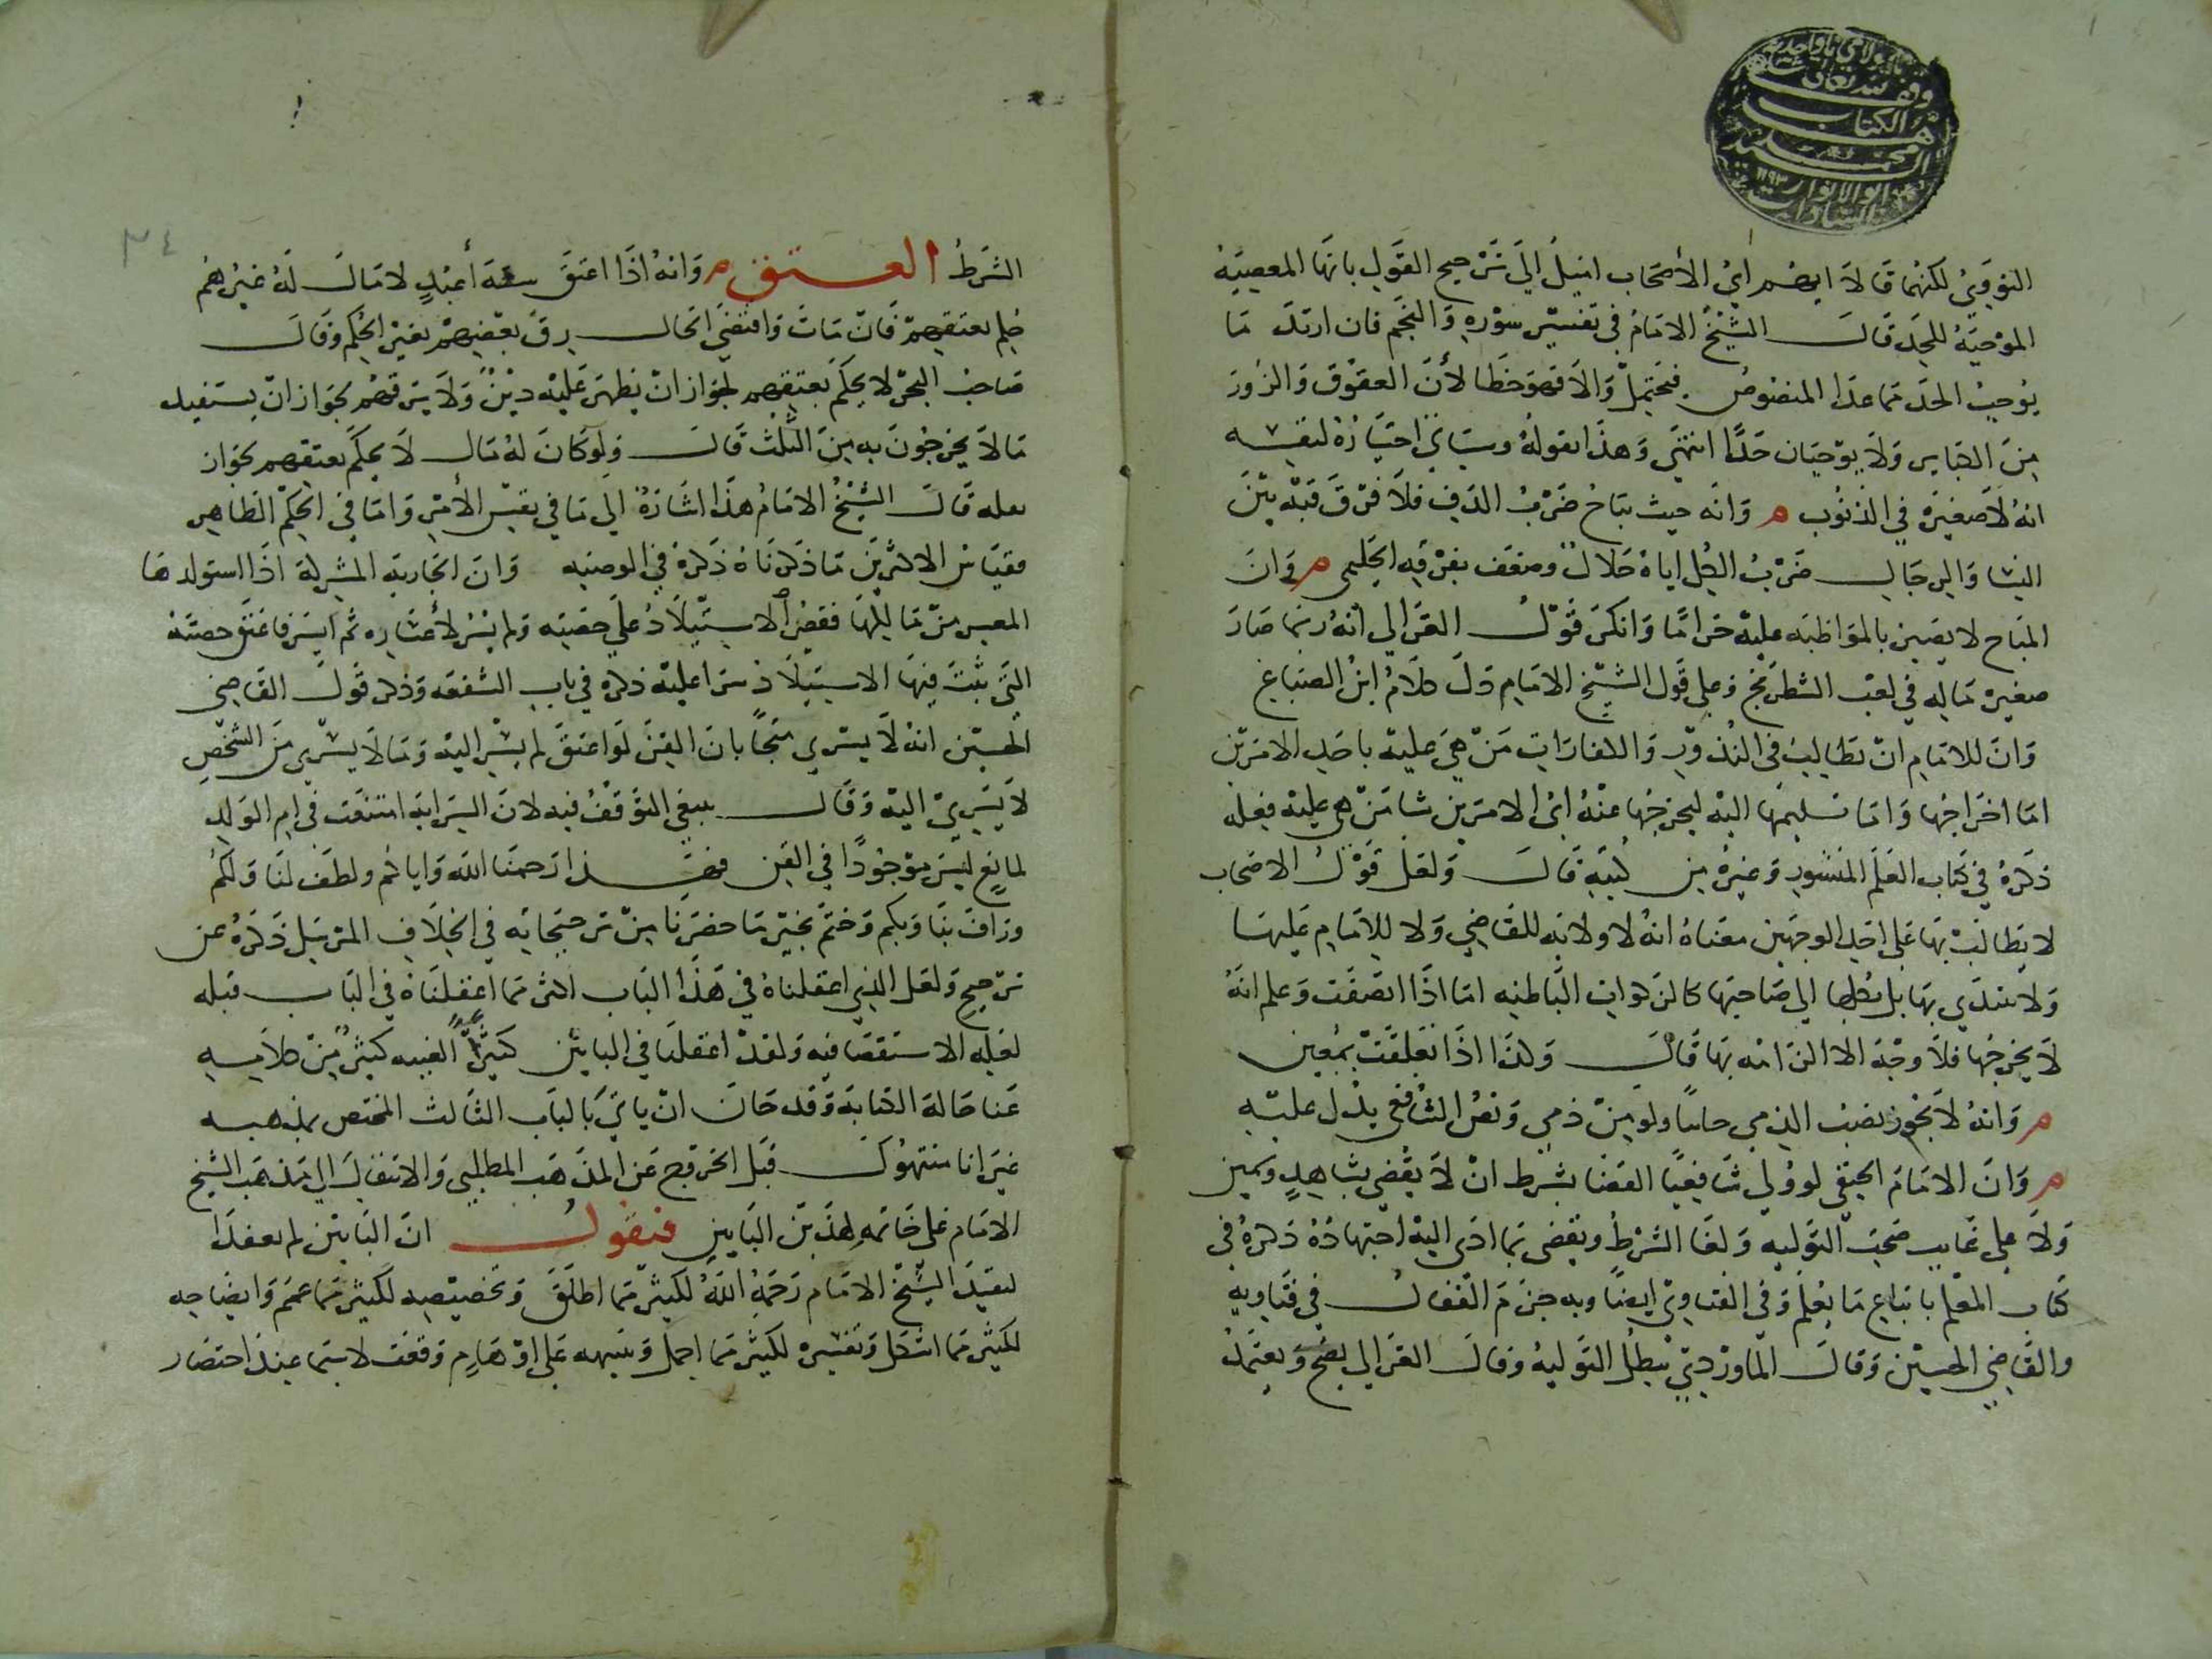 النووي لكنهما قالا ايهم اي الأصحاب اميل الي ترجيح القول بانها المعصية
الموجبة للحد قال الشيخ الامام في تفسير سورة والنجم فان ارتد ما
يوجب الحد مما عدا المنصوص فيحتمل والا فهو خطا لأن العقوق والزور
من الكباير ولا يوجبان حدا انتهى وهذا بقوله وسياتي اختياره لنفسه
انه لا صغيرة في الذنوب م وانه حيث يباح ضرب الدف فلا فرق فيه بين
النسا والرجال ضرب الكل اياه حلال وضعف بفرقه الحليمي م وان
المباح لا يصير بالمواظبة عليه حراما وانكر قول الغزالي انه ربما صار
صغيرة ماله في لعب الشطرنج وعلى قول الشيخ الامام دل كلام ابن الصباغ
وان للامام ان يطالب في النذور والكفارات من هي عليه باحد الامرين
اما اخراجها واما تسليمها اليه ليخرجها عنه اي الامرين شا من هي عليه فعله
ذكره في كتاب العلم المنشور وغيره من كتبه قال ولعل قول الاصحاب
لا يطالب بها على احد الوجهين معناه انه لا ولاية للقاضي ولا للامام عليها
ولا يبتدي بها بل يكلها الي صاحبها كالزكوات الباطنه اما اذا اتصفت وعلم انه
لا يخرجها فلا وجه الا الزامه بها قال وكذا اذا تعلقت بمعين
م وانه لا يجوز نصب الذمي حابيا ولو من ذمي ونص الشافعي يدل عليه
م وان الامام الحنفي لو ولي شافعيا القضا بشرط ان لا يقضي بشاهد ويمين
ولا على غايب صحت التولية ولغا الشرط ويقضي بما ادى اليه اجتهاده ذكره في
كتاب المعلم باتباع ما يعلم وفي الفتاوى ايضا وبه جزم القفال في فتاويه
والقاضي الحسين وقال الماوردي تبطل التولية وقال الغزالي يصح ويعتمد
٣٤
الشرط العتق م وانه اذا اعتق ستة أعبد لا مال له غيرهم
حكم بعتقهم فان مات واقتضى الحال رق بعضهم بغير الحكم وقال
صاحب البحر لا يحكم بعتقهم لجواز ان يظهر عليه دين ولا يرقهم لجواز ان يستفيد
مالا يخرجون به من الثلث قال ولو كان له مال لا يحكم بعتقهم لجواز
تلفه قال الشيخ الامام هذا اشارة الي ما في نفس الأمر واما في الحكم الظاهر
فقياس الاكثرين ما ذكرناه ذكره في الوصية وان الجارية المشتركة اذا استولدها
المعسر من مالكيها فقصر الاستيلاد على حصته ولم يسر لأعساره ثم ايسر فاعتق حصته
التي ثبت فيها الاستيلاد سرا عليه ذكره في باب الشفعة وذكر قول القاضي
الحسين انه لا يسري محتجا بان القن لو اعتق لم يسر اليه وما لا يسري من الشخص
لا يسري اليه وقال ينبغي التوقف فيه لان السراية امتنعت في ام الولد
لمانع ليس موجودا في القن فهذا رحمنا الله واياكم ولطف لنا ولكم
ورافت بنا وبكم وختم بخير ما حضرنا من ترجيحاته في الخلاف المرسل ذكره عن
ترجيح ولعل الذي اغفلناه في هذا الباب اكثر مما اغفلناه في الباب قبله
لقله الاستقصا فيه ولقد اغفلنا في البابين كثيرا لغيبه كثير من كلامه
عنا حالة الكتابة وقد حان ان ياتي بالباب الثالث المختص بمذهبه
غير انا منتهوك قبل الخروج عن المذهب المطلبي والانتقال الي مذهب الشيخ
الامام على خاتمة لهذين البابين فنقول ان البابين لم يعقدا
لتقيد الشيخ الامام رحمه الله لكثير مما اطلق وتخصيصه لكثير مما عمم وايضاحه
لكثير مما اشكل وتفسيره لكثير مما اجمل وتنبيهه على اوهام وقعت لا سيما عند اختصار